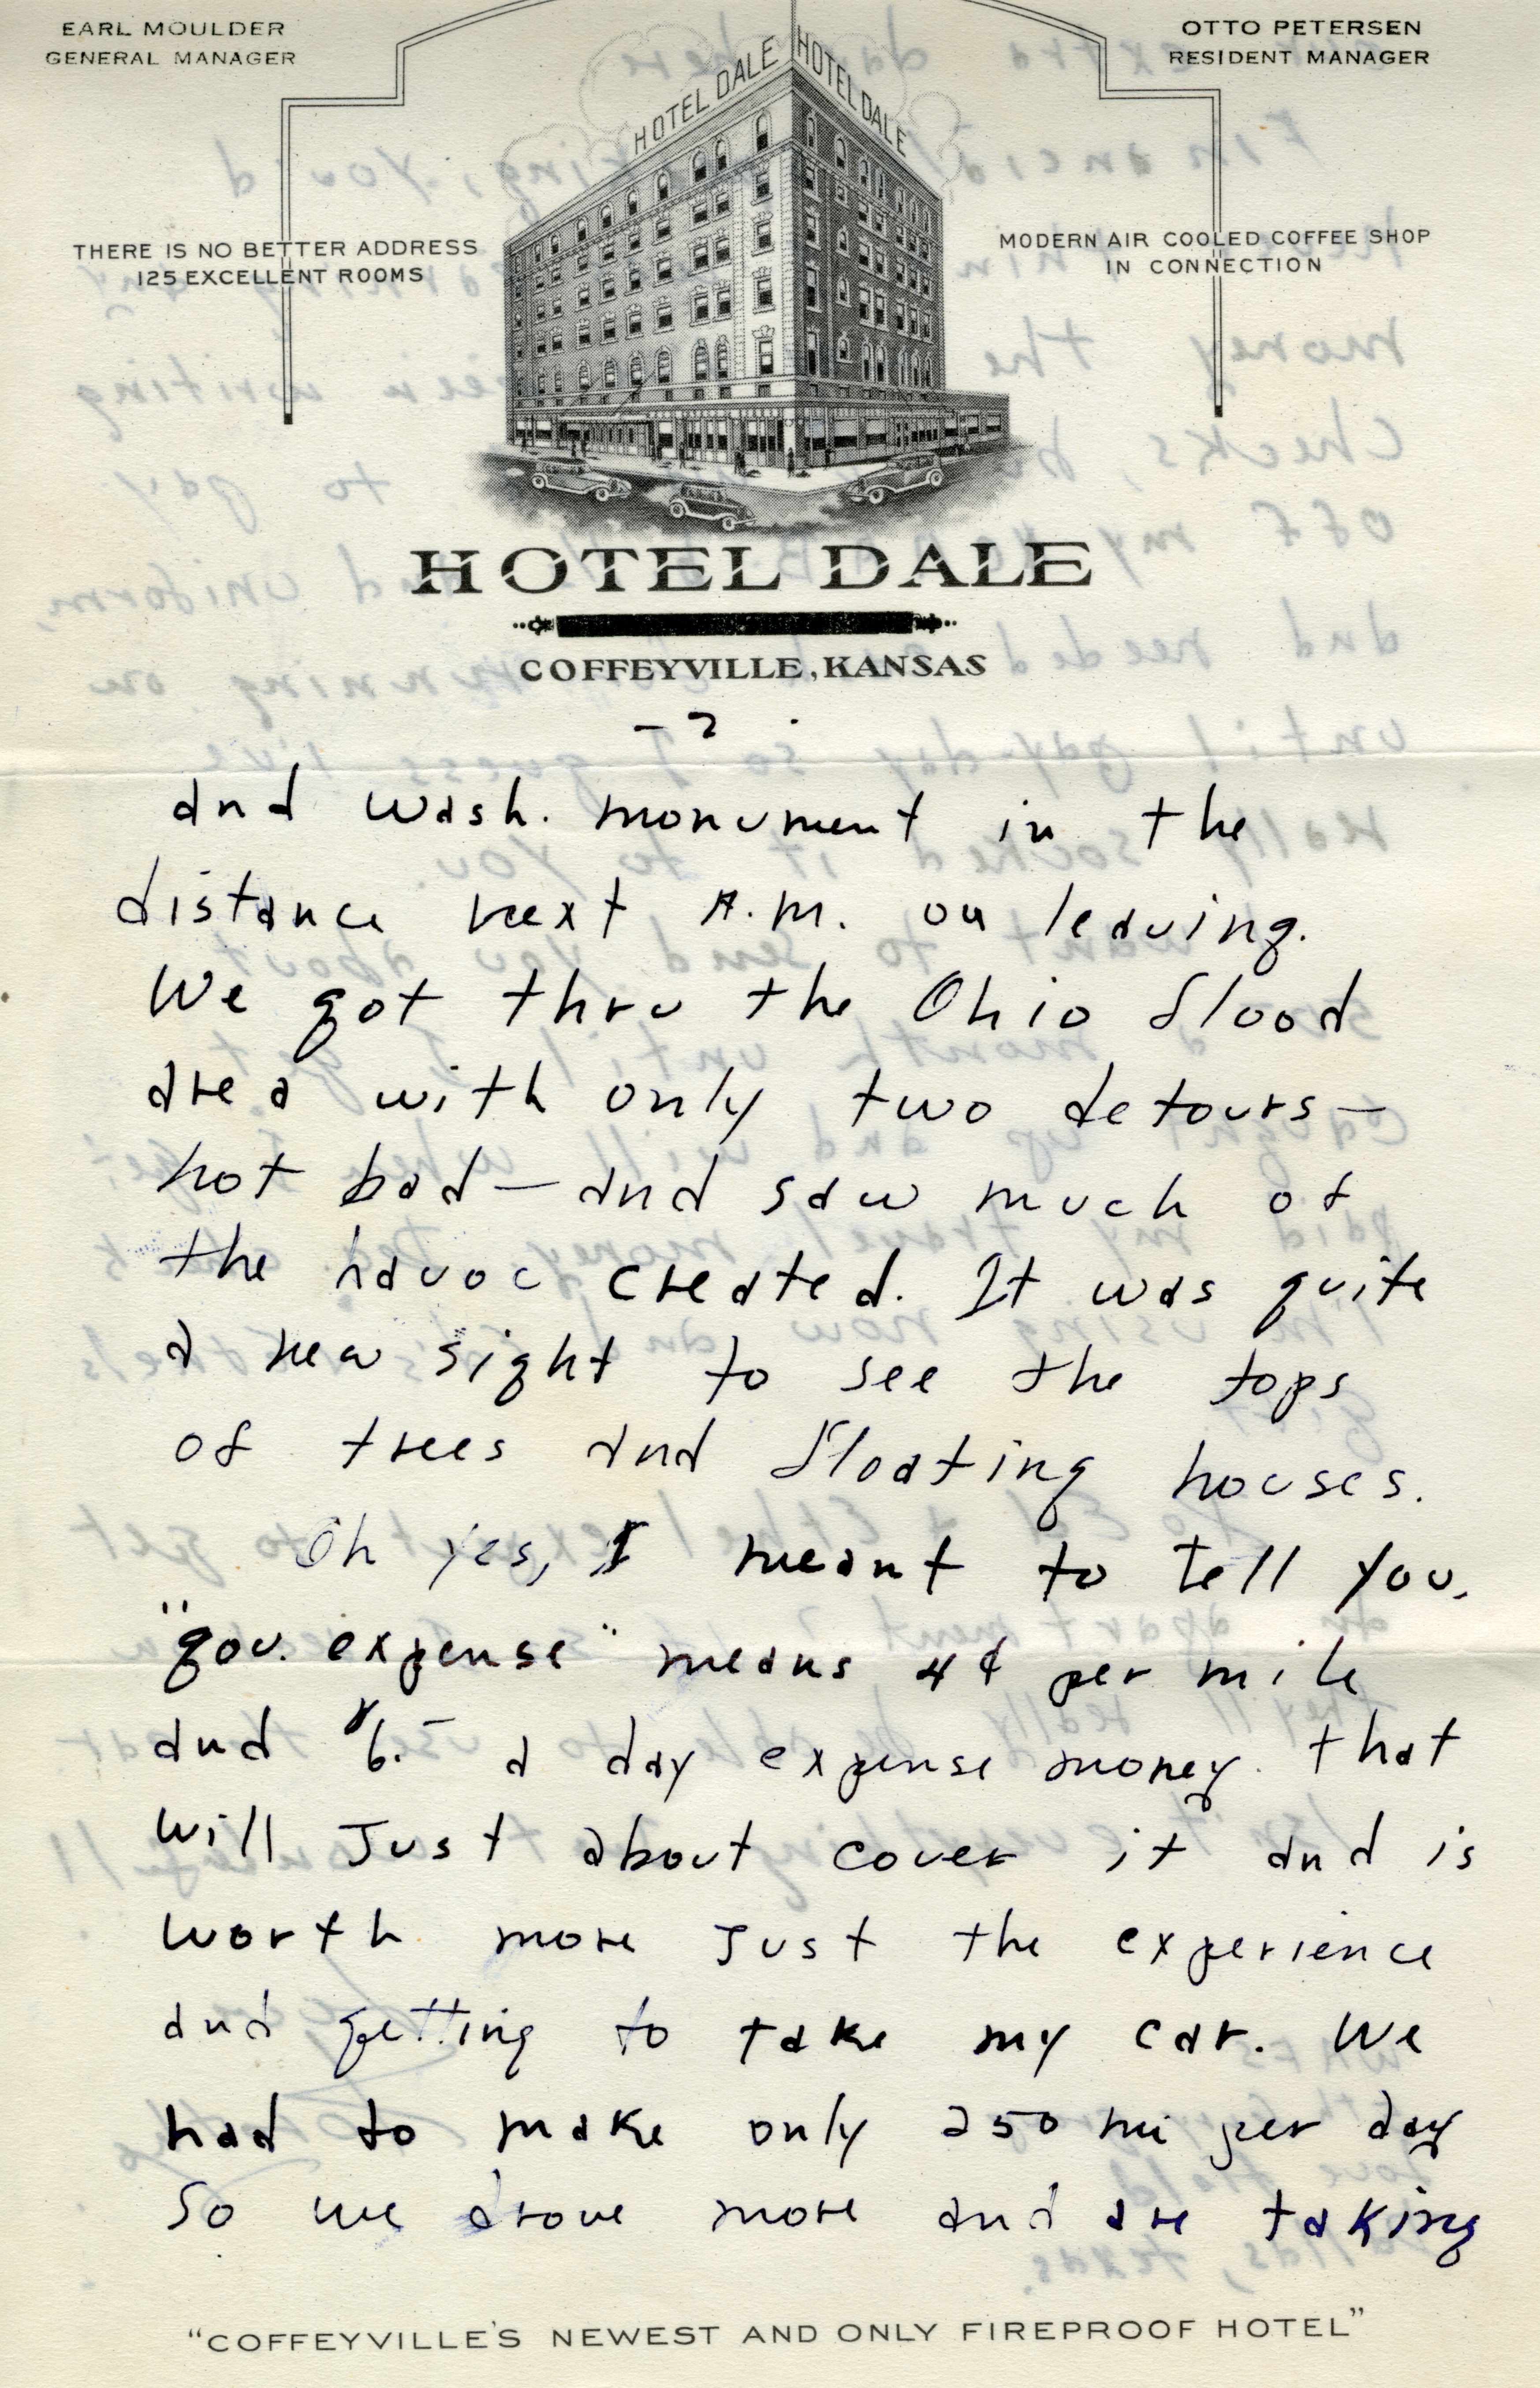 EARL MOULDER
GENERAL MANAGER
OTTO PETERSEN
RESIDENT MANAGER
HOTEL DALE
HOTEL DALE
THERE IS NO BETTER ADDRESS
125 EXCELLENT ROOMS
MODERN AIR COOLED COFFEE SHOP
IN CONNECTION
HOTEL DALE
COFFEYVILLE, KANSAS
- 2 .
and wash. monument in the
distance next A.M. on leaving.
We got thru the Ohio flood
area with only two detours—
not bad — and saw much of
the havoc created. It was quite
a new sight to see the tops
of trees and floating houses.
Oh yes, I meant to tell you.
"gov. expense" means 4¢ per mile
and $6.- a day expense money. that
will Just about cover it and is
worth more Just the experience
and getting to take my car. We
had to make only 250 mi per day
So we drove more and are taking
"COFFEYVILLE'S NEWEST AND ONLY FIREPROOF HOTEL"